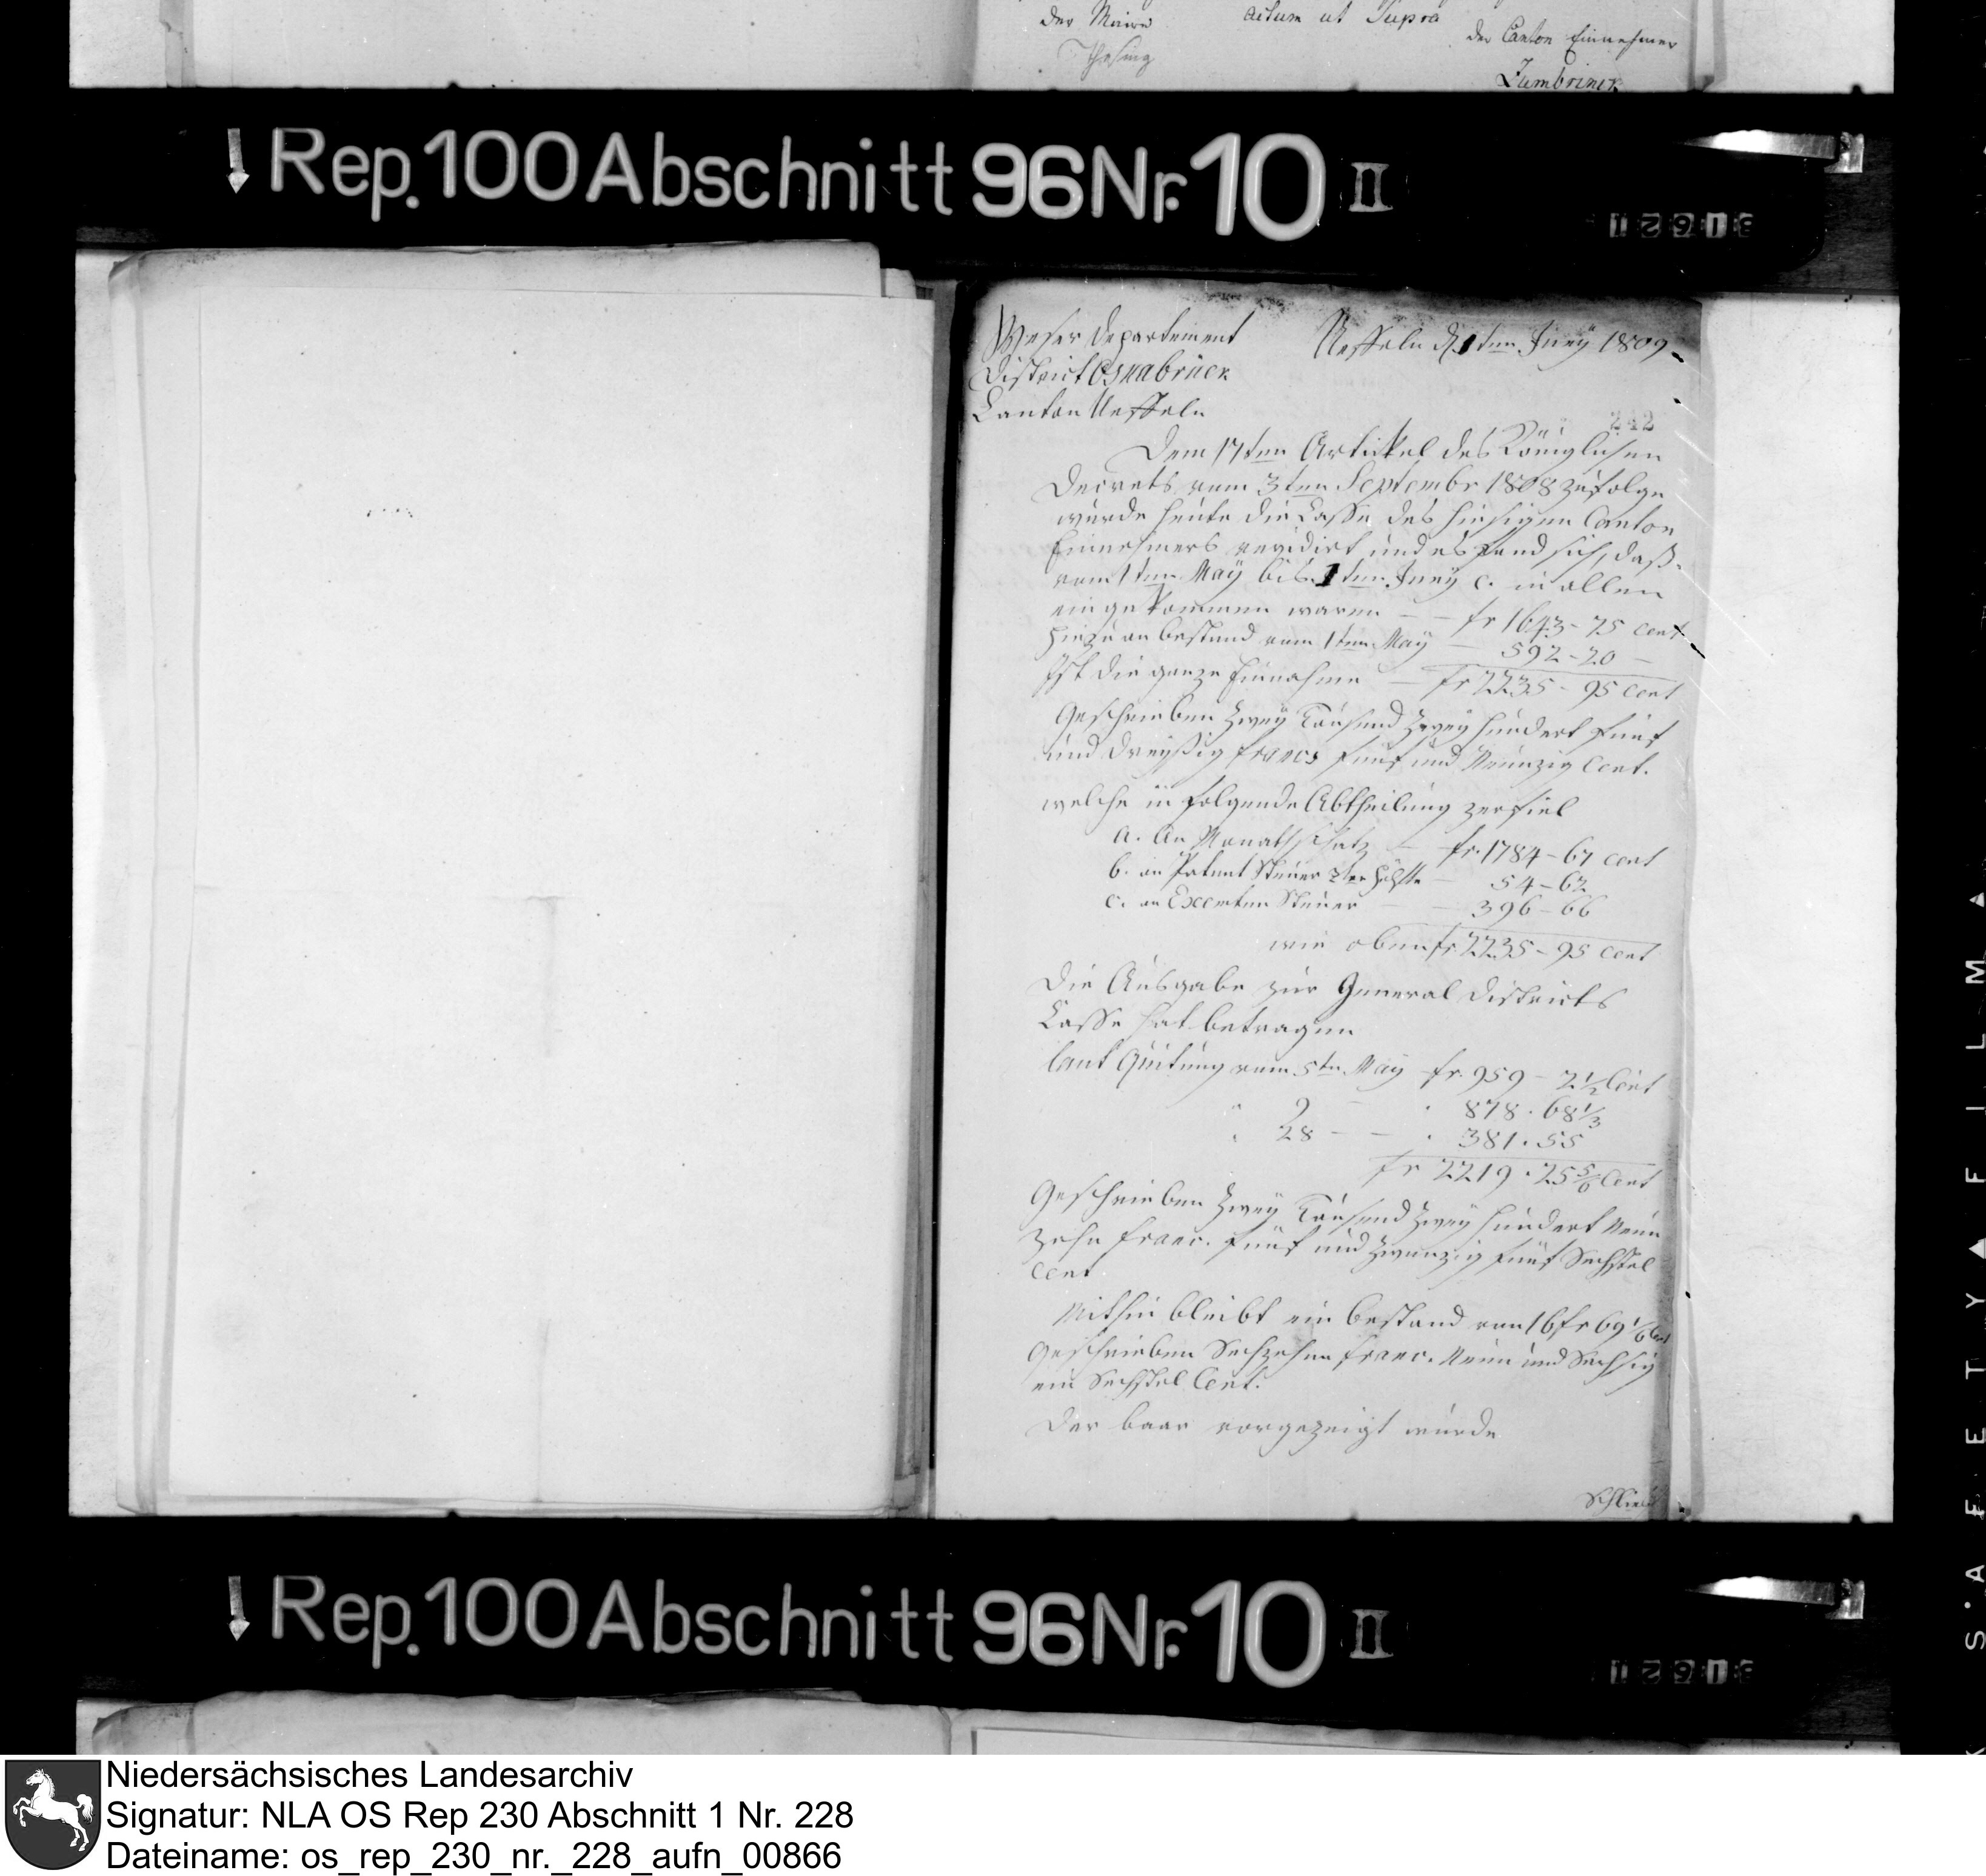 der Maire
actum ut Supra
der Canton Einnehmer
Thesing
Zumbrinck
Rep. 100 Abschnitt 96 Nr. 10 II
Weser Departement
Ueffeln d. 1ten Juny 1809.
District Osnabrück
Canton Ueffeln
242
Dem 17ten Artickel des Königlichen
Decrets vom 3ten Septembr 1808 zufolge
wurde heute die Casse des hiesigen Canton
Einnehmers revidirt und es fand sich, daß
vom 1ten May bis 1ten Juny c. in allen
eingekommen waren — fr 1643 - 75 cent
hiezu an bestand vom 1ten May — 592 - 20 —
Ist die ganze Einnahme — fr 2235 - 95 cent
Geschrieben Zwey Tausend Zwey hundert fünf
und dreyßig francs fünf und Neunzig Cent.
welche in folgende Abtheilung zerfiel
a. An Monatschatz — fr. 1784 - 67 cent
b. an Patent Steuer 2ter Hälfte — 54 - 62
c. an Exemten Steuer — 396 - 66
wie oben fr. 2235 - 95 cent
Die Ausgabe zur General Districts
Casse hat betragen
laut Quitung vom 5ten May fr. 959 - 2 1/2 Cent
" 9 — . 878 . 68 1/3
" 28 — — . 381 . 55
fr 2219 . 25 5/6 Cent
Geschrieben Zwey Tausend Zwey hundert Neun
zehn franc. fünf und Zwanzig fünf Sechstel
Cent
Mithin bleibt ein bestand von 16 fr 69 1/6 Cent
Geschrieben Sechzehn franc. Neun und Sechsig
ein Sechstel Cent.
der baar vorgezeigt wurde
Rep. 100 Abschnitt 96 Nr. 10 II
SAFETY FILM
Niedersächsisches Landesarchiv
Signatur: NLA OS Rep 230 Abschnitt 1 Nr. 228
Dateiname: os_rep_230_nr._228_aufn_00866